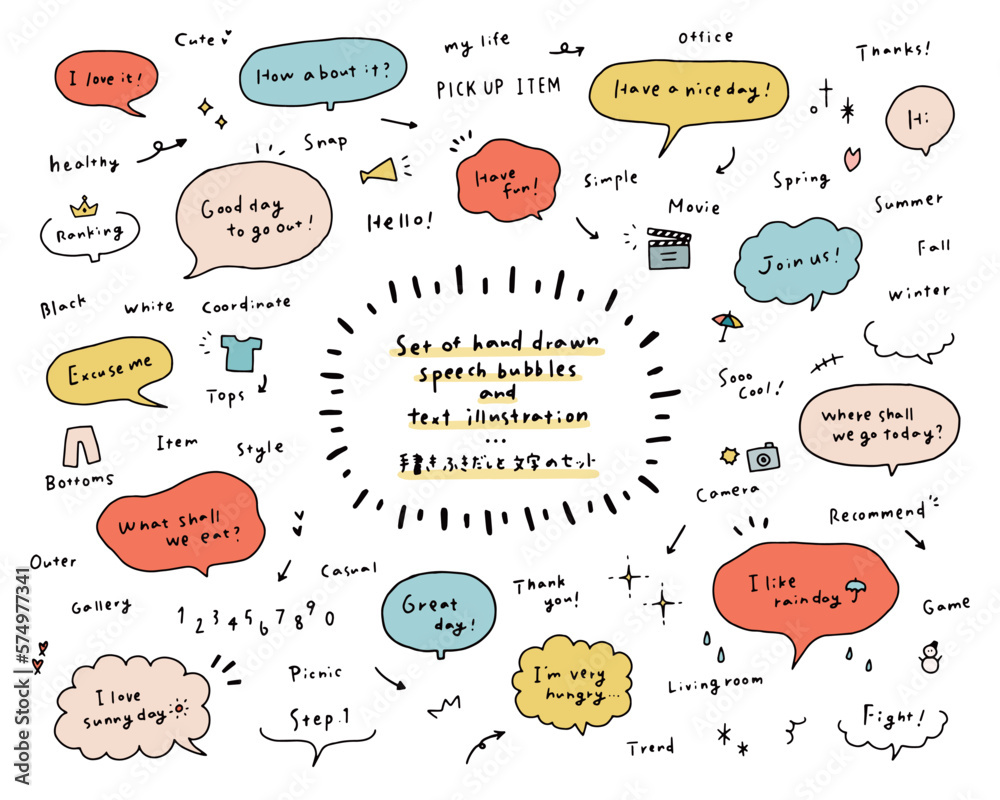 Cute
my life
office
Thanks!
I love it!
How about it?
PICK UP ITEM
Have a nice day!
Hi
healthy
Snap
Have
fun!
Simple
Spring
Ranking
Good day
to go out!
Hello!
Movie
Summer
Join us!
Fall
Winter
Black
White
Coordinate
Set of hand drawn
speech bubbles
and
text illustration
...
手書きふきだしと文字のセット
Excuse me
Tops
Sooo
Cool!
Where shall
we go today?
Item
Style
Bottoms
Camera
Recommend
What shall
we eat?
Outer
Casual
Thank
you!
I like
rain day
Game
Gallery
1 2 3 4 5 6 7 8 9 0
Great
day!
I love
sunny day
Picnic
I'm very
hungry...
Living room
Step.1
Trend
Fight!
Adobe Stock | #574977341